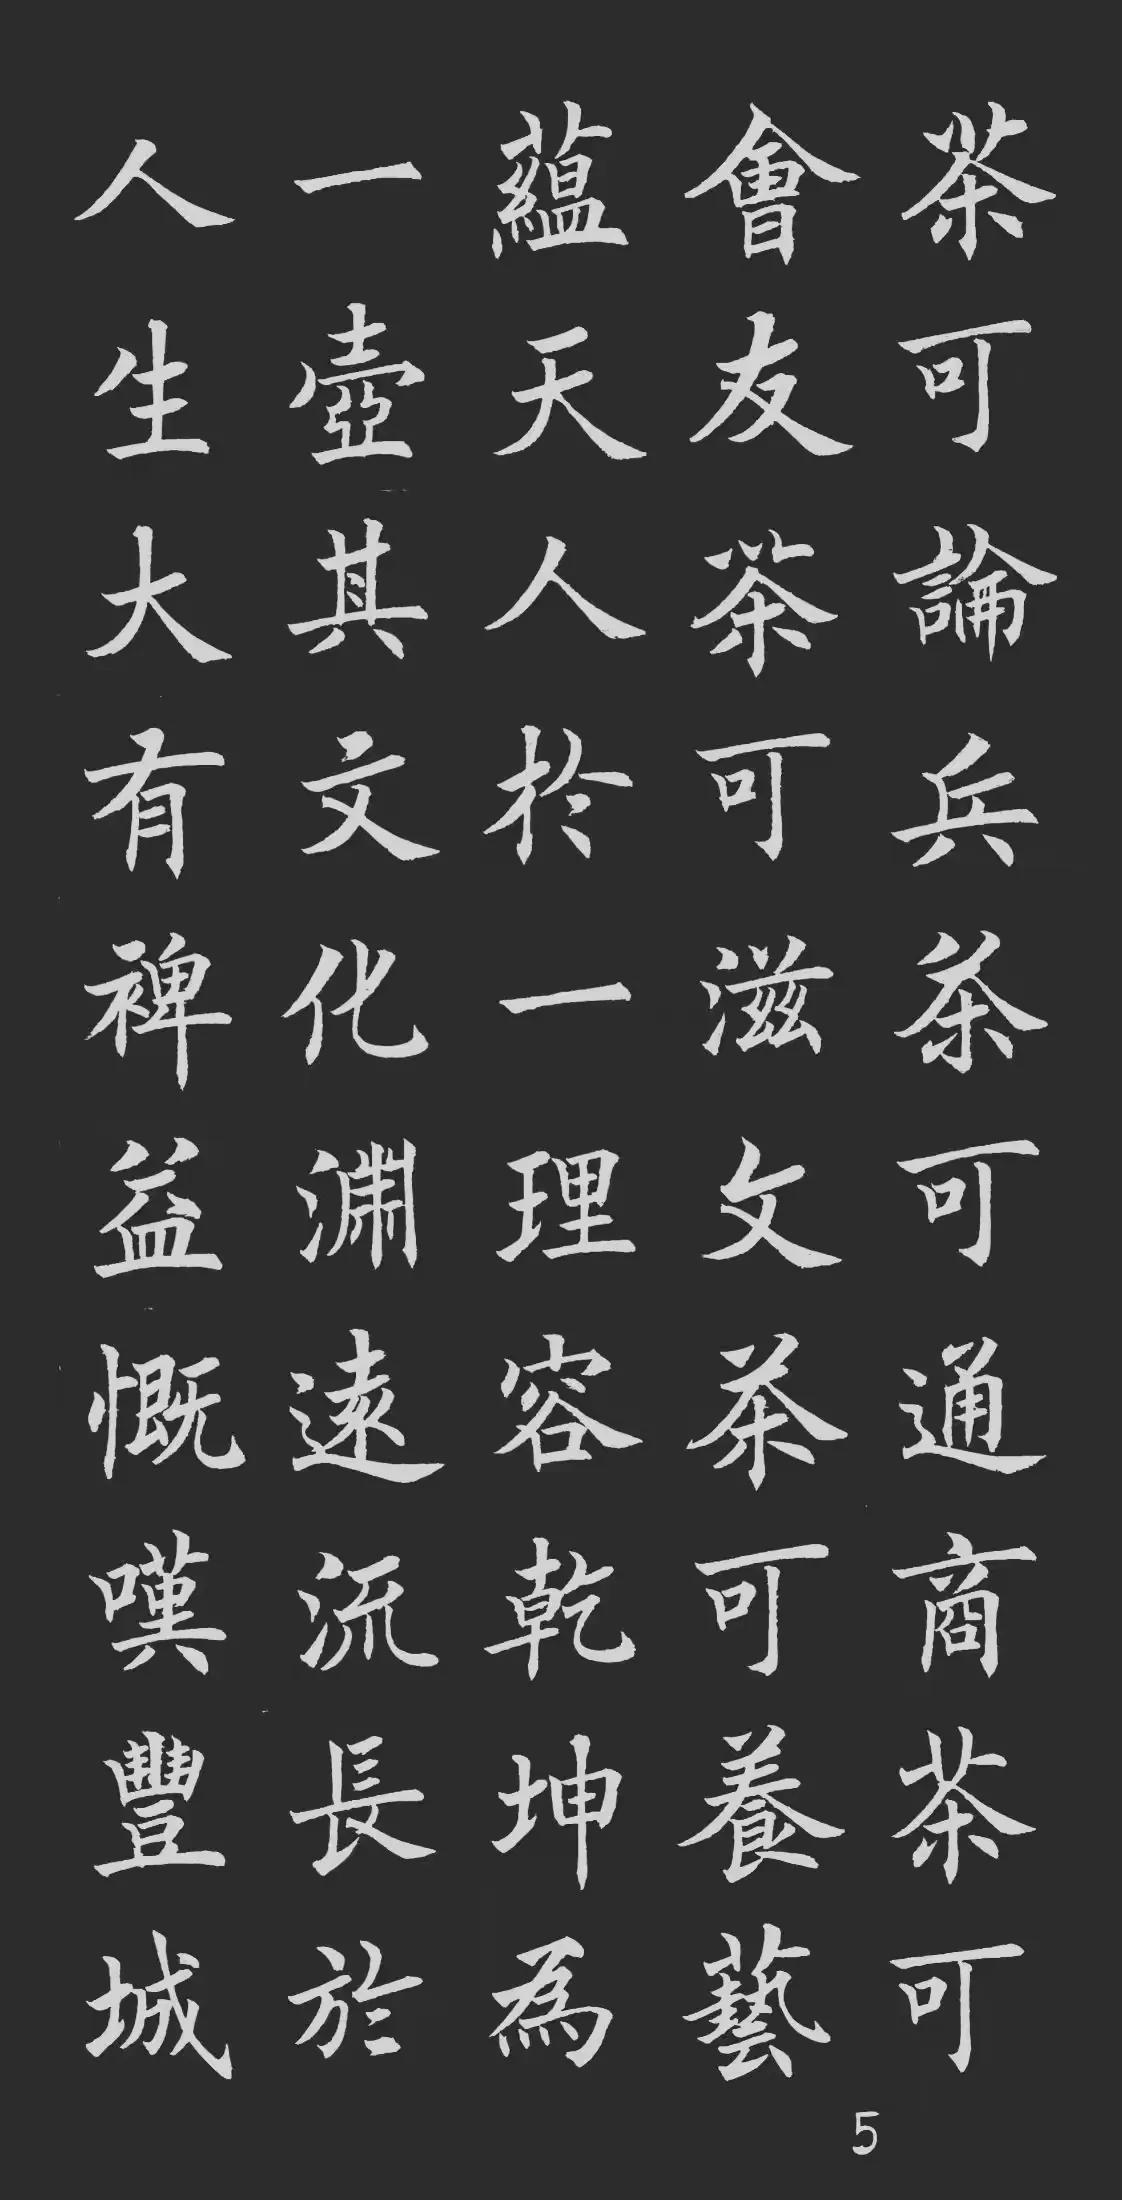 茶可論兵茶可通商茶可
會友茶可滋文茶可養藝
蘊天人於一理容乾坤為
一壺其文化淵遠流長於
人生大有裨益慨嘆豐城
5